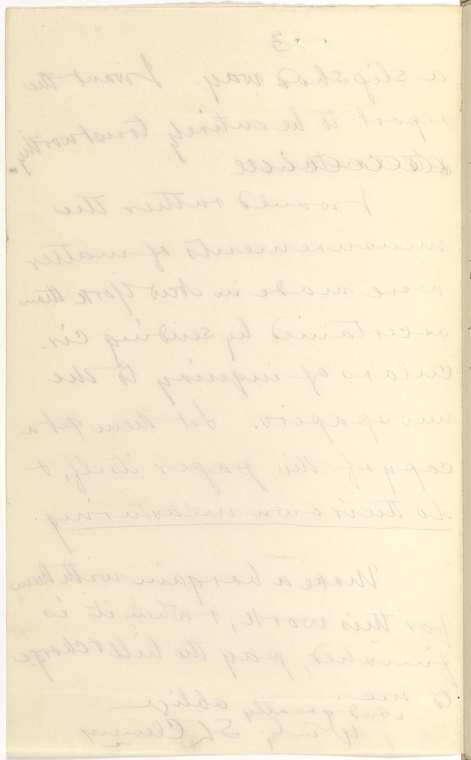 3
a slipshod way. I want the
report to be entirely trustworthy.
I would rather the
measurements of matter
were made in New York than
ascertained by sending cir-
culars of inquiry to the
newspapers. Let them get a
copy of the paper itself, &
do their own measuring.
Make a bargain with them
for this work, & when it is
finished, pay the bill & charge
to me.
And greatly oblige
Yrs truly S L Clemens